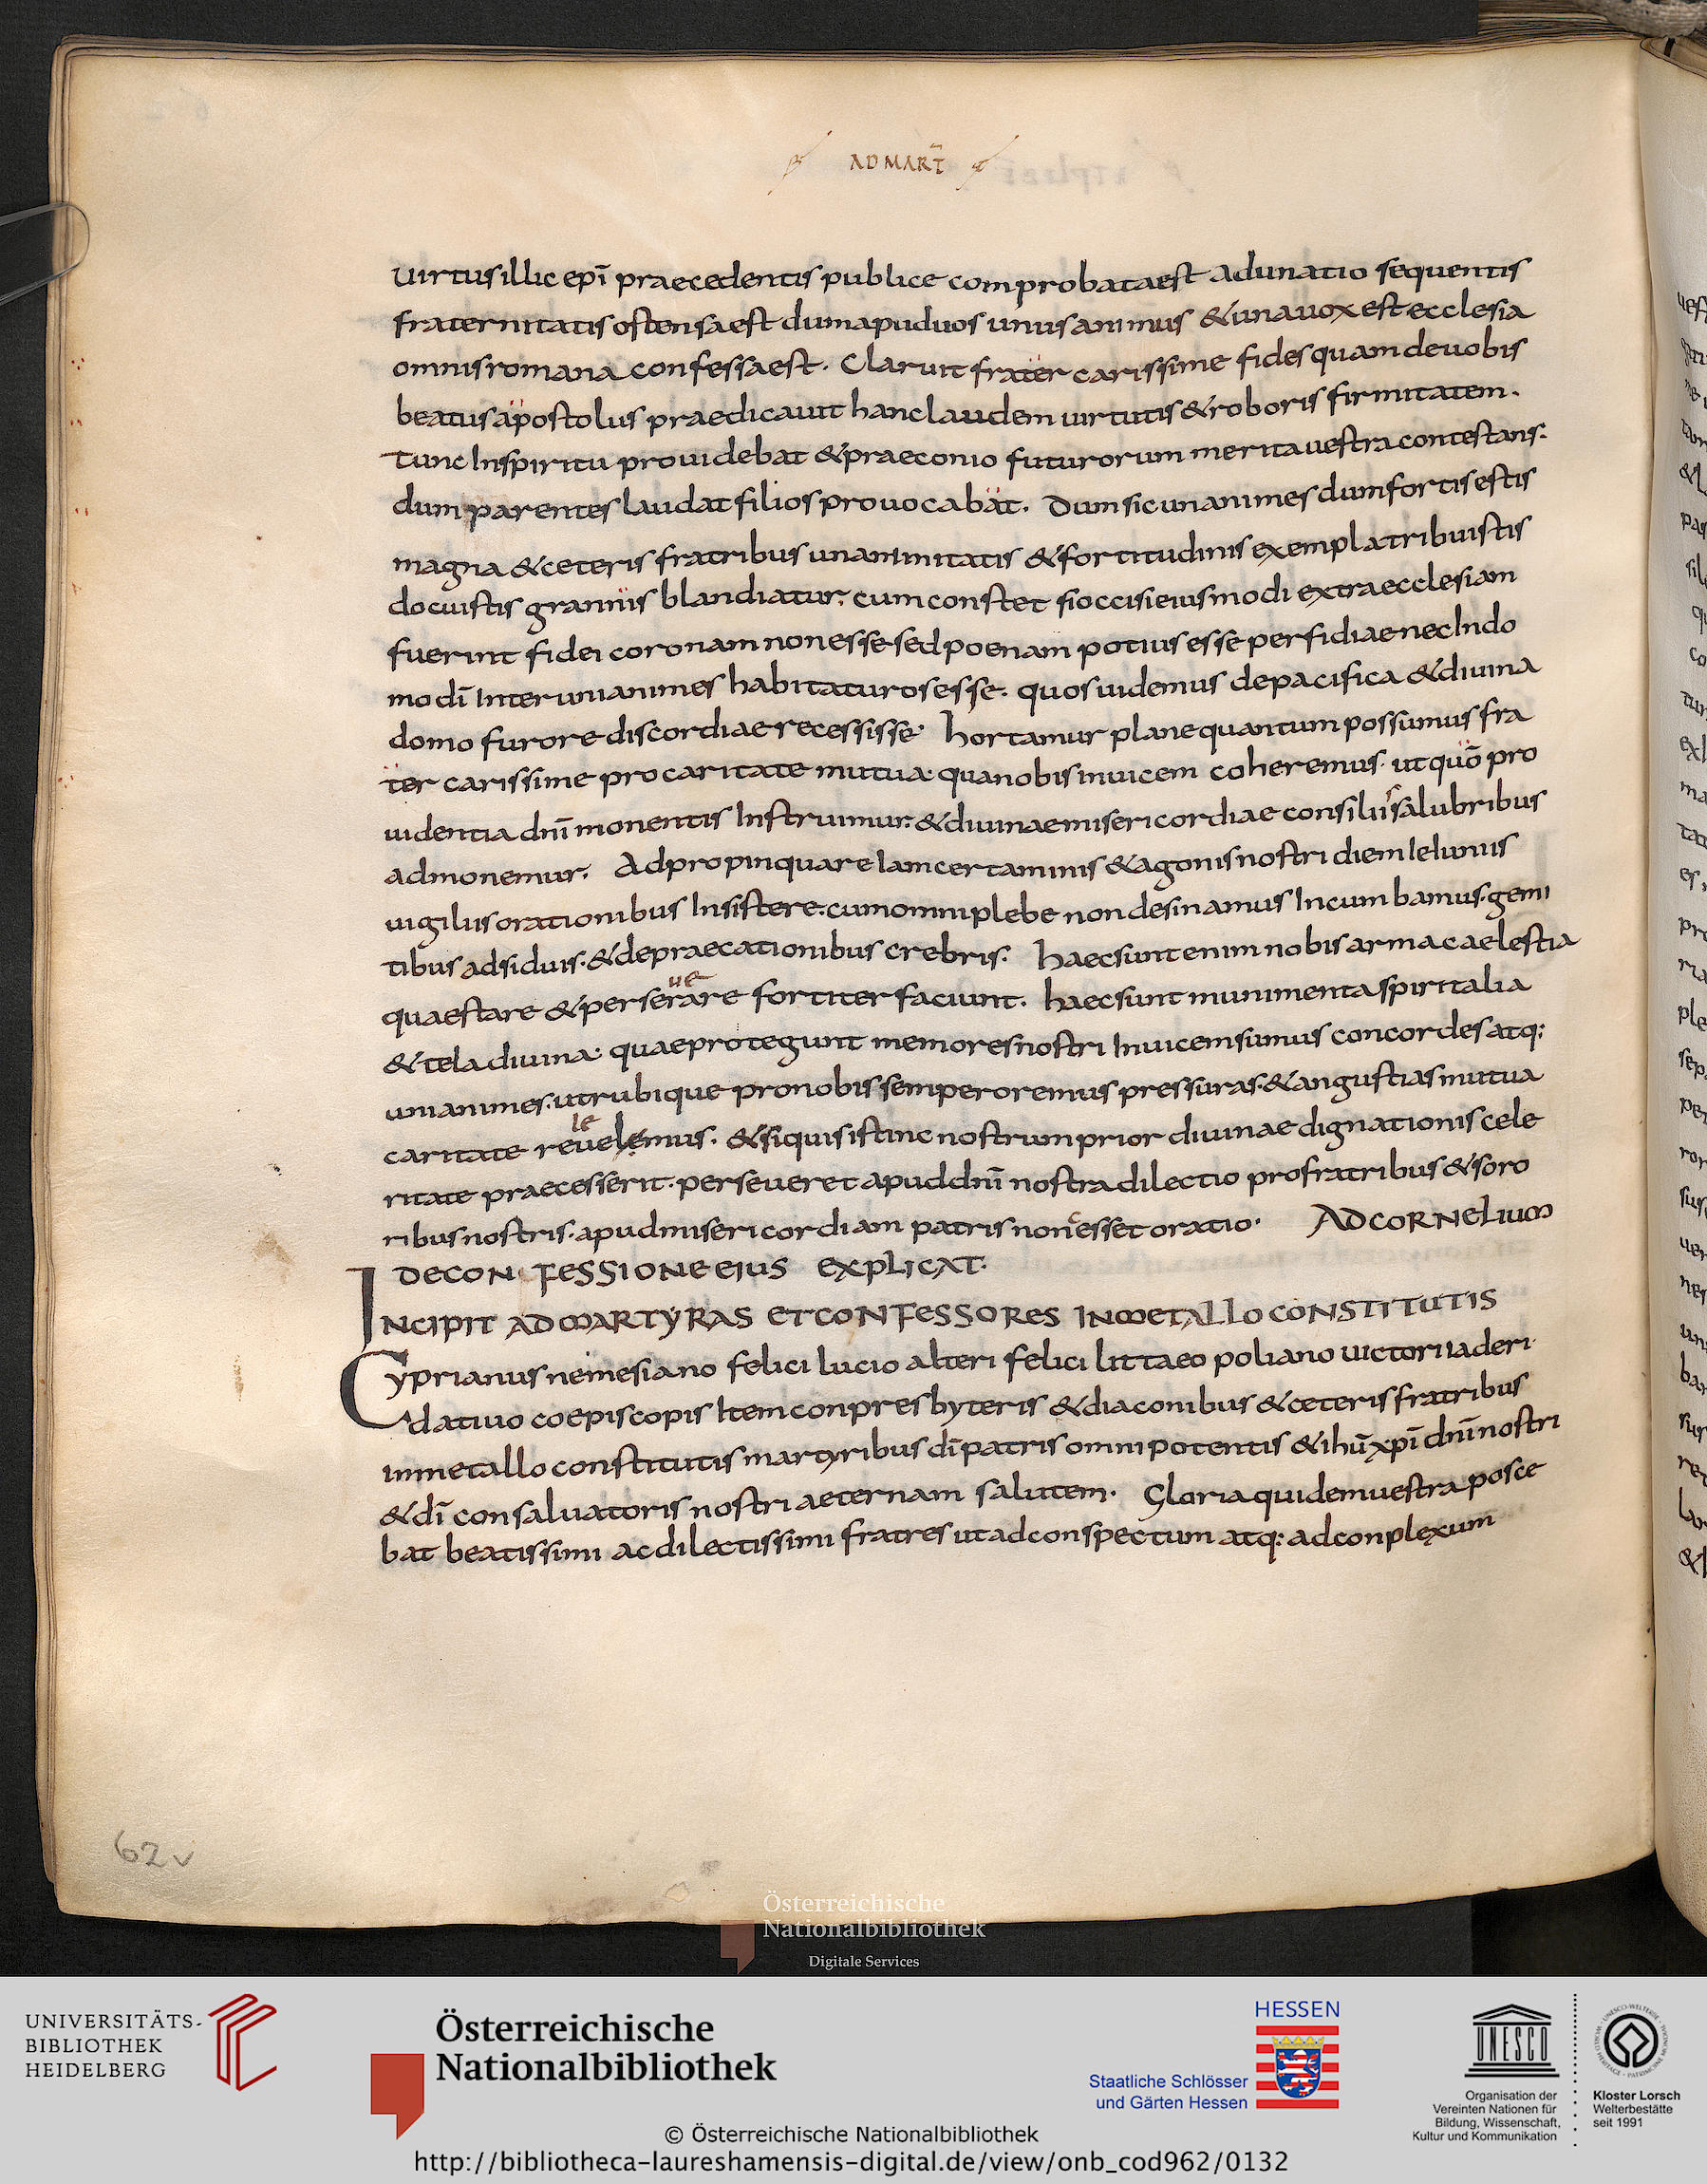 AD MART̄
uirtus illic epī praecedentis publice comprobata est adunatio sequentis
fraternitatis ostensa est dum apud uos unus animus & una uox est ecclesia
omnis romana confessa est. Claruit frater carissime fides quam de uobis
beatus apostolus praedicauit hanc laudem uirtutis & roboris firmitatem.
tunc Inspiritu prouidebat & praeconio futurorum merita uestra contestans.
dum parentes laudat filios prouocabat. Dum sic unanimes dum fortis estis
magna & ceteris fratribus unanimitatis & fortitudinis exempla tribuistis
docuistis granniis blandiatur. cum constet si occisi eiusmodi extra ecclesiam
fuerint fidei coronam non esse sed poenam potius esse perfidiae nec Indo
mo dī Inter unianimes habitaturos esse. quos uidemus de pacifica & diuina
domo furore discordiae recessisse. hortamur plane quantum possumus fra
ter carissime pro caritate mutua. qua nobis inuicem coheremus. ut quō pro
uidentia dnī monentis Instruimur. & diuinae misericordiae consiliis salubribus
admonemur. Adpropinquare Iam certaminis & agonis nostri diem Ieiuniis
uigiliis orationibus Insistere. cum omni plebe non desinamus Incumbamus. gemi
tibus adsiduis. & depraecationibus crebris. haec sunt enim nobis arma caelestia
ue
quae stare & perserare fortiter faciunt. haec sunt munimenta spiritalia
& tela diuina. quae protegunt memores nostri Inuicem simus concordes atq:
unianimes. utrubique pro nobis semper oremus pressuras. & angustias mutua
le
caritate reuelemus. & siquis istinc nostrum prior diuinae dignationis cele
ritate praecesserit. perseueret apud dnī nostra dilectio pro fratribus & soro
ribus nostris. apud misericordiam patris non esset oratio. AD CORNELIUM
DE CONFESSIONE EIUS EXPLICAT.
INCIPIT AD MARTYRAS ET CONFESSORES IN METALLO CONSTITUTIS
Cyprianus nemesiano felici lucio alteri felici littaeo poliano uictori iaderi
datiuo coepiscopis Item conpresbyteris & diaconibus & ceteris fratribus
in metallo constitutis martyribus dī patris omnipotentis & ihū xpī dnī nostri
& dī conseruatoris nostri aeternam salutem. Gloria quidem uestra posce
bat beatissimi ac dilectissimi fratres ut ad conspectum atq: ad conplexum
62v
Österreichische
Nationalbibliothek
Digitale Services
UNIVERSITÄTS-
BIBLIOTHEK
HEIDELBERG
Österreichische
Nationalbibliothek
HESSEN
Staatliche Schlösser
und Gärten Hessen
UNESCO
Organisation der
Vereinten Nationen für
Bildung, Wissenschaft,
Kultur und Kommunikation
Kloster Lorsch
Welterbestätte
seit 1991
© Österreichische Nationalbibliothek
http://bibliotheca-laureshamensis-digital.de/view/onb_cod962/0132